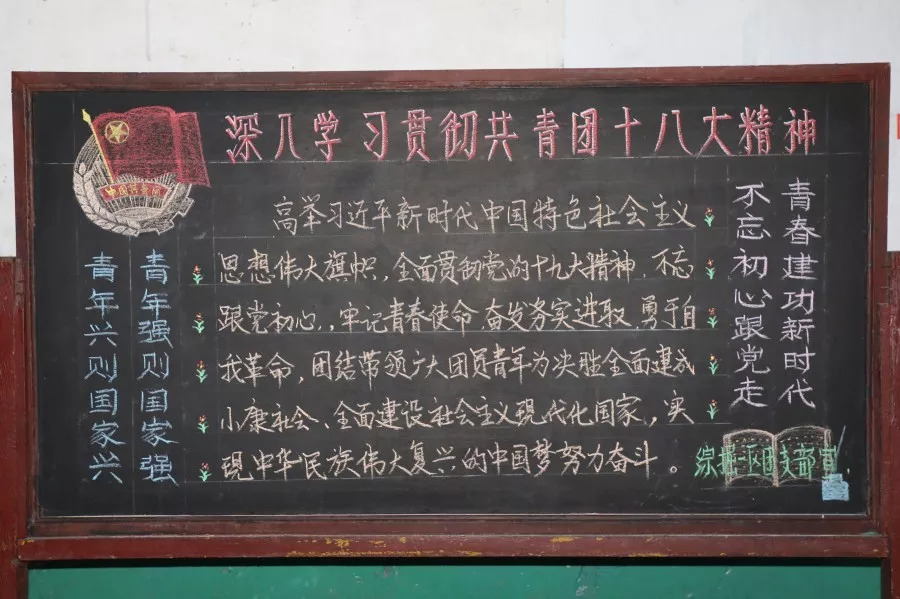 深入学习贯彻共青团十八大精神
高举习近平新时代中国特色社会主义
思想伟大旗帜,全面贯彻党的十九大精神,不忘
跟党初心,牢记青春使命,奋发务实进取,勇于自
我革命,团结带领广大团员青年为决胜全面建成
小康社会、全面建设社会主义现代化国家,实
现中华民族伟大复兴的中国梦努力奋斗。
青春建功新时代
不忘初心跟党走
青年强则国家强
青年兴则国家兴